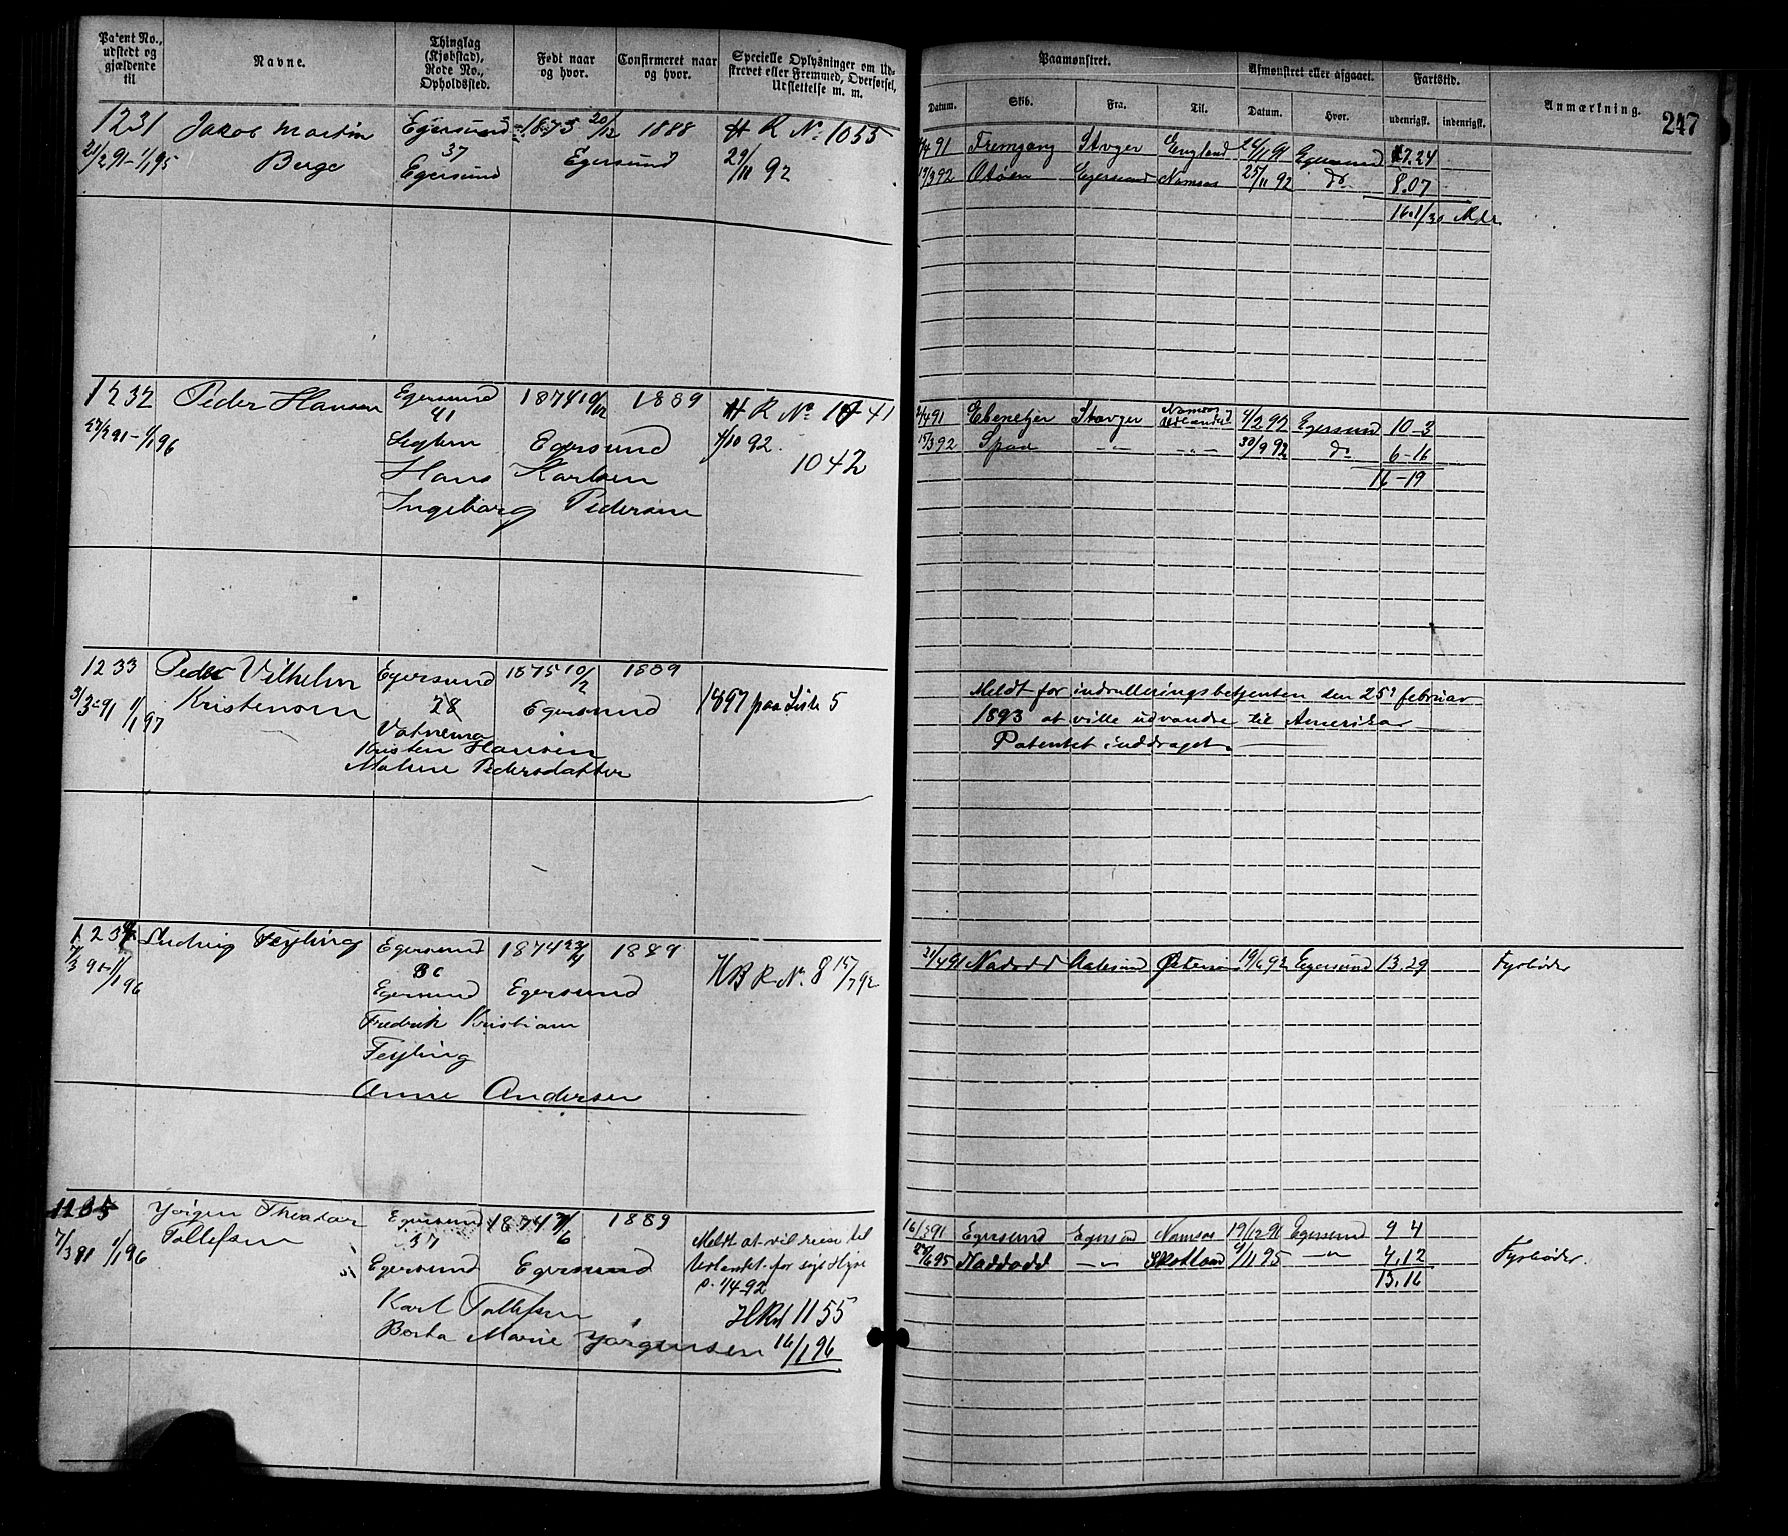 Patent No., udstedt og gjældende til
Navne.
Thinglag (Kjøbstad), Rode No., Opholdssted.
Født naar og hvor.
Confirmeret naar og hvor.
Specielle Oplysninger om Udskrevet eller Fremmed, Overførsel, Udslettelse m. m.
Paamønstret.
Afmønstret eller afgaaet.
Fartstid.
Anmærkning.
247
Datum. Skib. Fra. Til. Datum. Hvor. udenrigsk. indenrigsk.
1231 Jakob Martin Egersund 1873 20/12 1888 H R No 1055
21/2 91 - 1/1 95 Berge 37 Egersund 29/11 92
Egersund
4/4 91 Fremgang Stvger England 26/1 91 Egersund 17.24
17/3 92 Otøen Egersund Namsos 25/11 92 do 8.07
16.1/30 Mdr
1232 Peder Hansen Egersund 1874 10/12 1889 H R No 1041
27/2 91 - 1/1 96 41 Egersund 4/10 92
1042
Hans Karlsen
Ingeborg Pedersen
2/4 91 Ebenetzer Stavger Namsos 4/2 92 Egersund 10-3
17/3 92 Spad -"- -"- 30/9 92 do 6-16
16-19
1233 Peder Vilhelm Egersund 1875 10/2 1889
3/3 91 1/1 97 Kristensen 28 Egersund 1897 paa Liste 5
Kristen Hansen
Malene Pedersdatter
Meldt for indrulleringsbetjenten den 25' februar
1893 at ville udvandre til Amerika
Patentet inddraget.
1234 Ludvig Feyling Egersund 1874 23/4 1889
7/3 91 - 1/1 96 Egersund Egersund HB R No. 8 15/7 92
Fredrik Kristian
Feyling
Anne Andersen
21/4 91 Nadodd Aalesund 19/6 92 Egersund 13.29 Fyrbøder
1235 Yørgen Theodor Egersund 1874 7/6 1889
7/3 91 1/1 96 Tollefsen 37
Egersund Egersund
Meldt at vil reise til
Udlandet for søge Hyre
p. 1/4 92
Karl Tollefsen
HRul 1155
Berta Marie Yørgensen 16/1 96
16/3 91 Egersund Egersund Namsos 19/12 91 Egersund 9 4
Naddodd -"- Skotland 9/11 95 -"- 4,12 Fyrbøder.
13,16